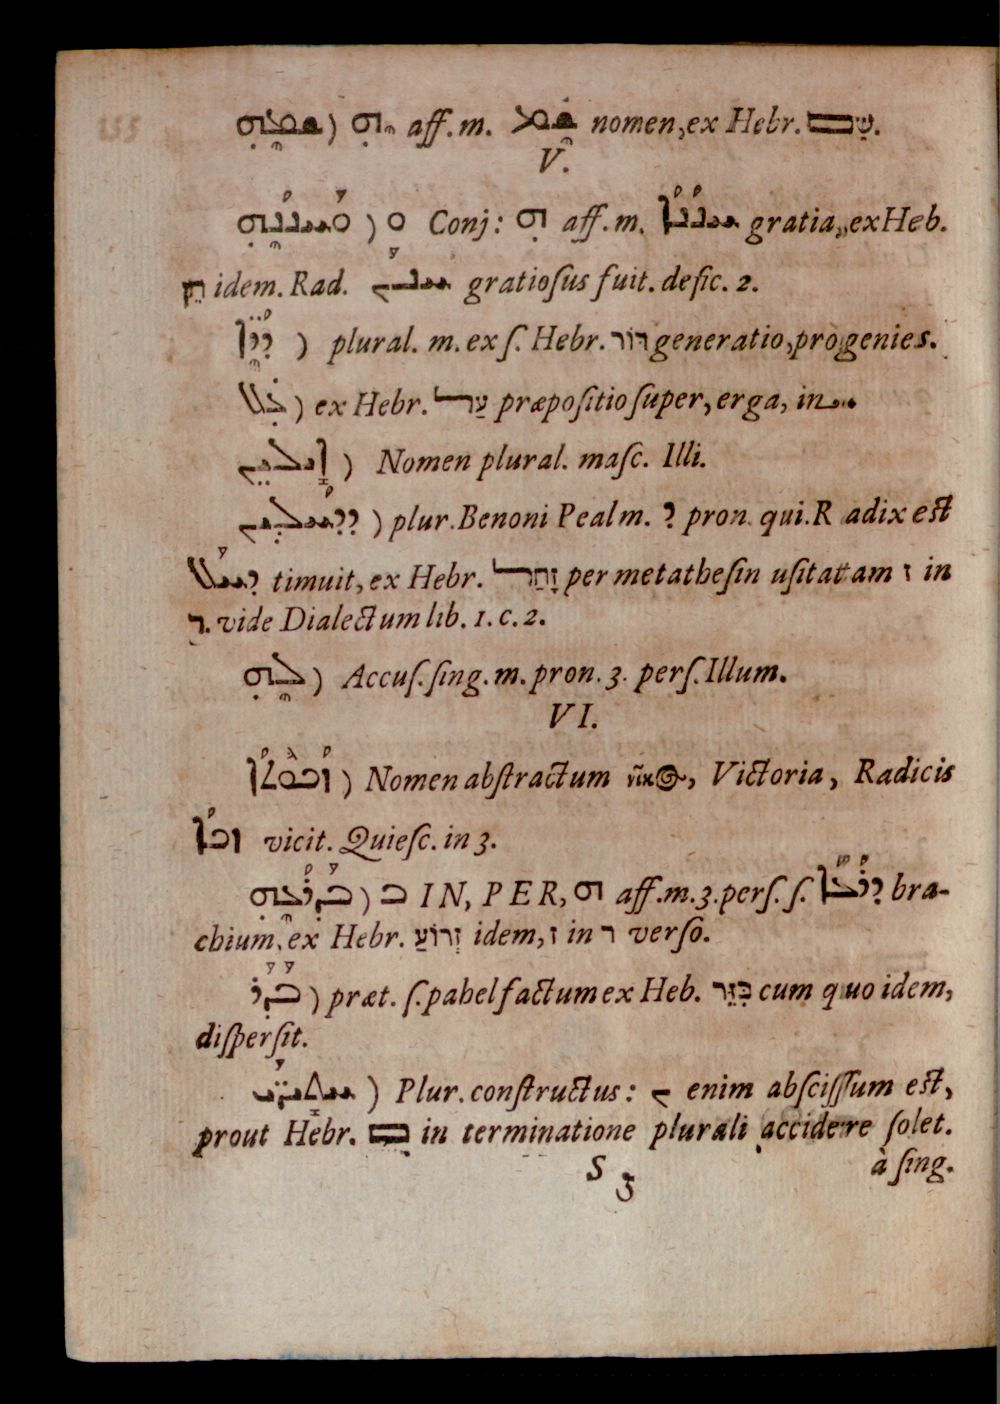 ܫܡܗ ) ܗ aff. m. ܫܡ nomen, ex Hebr. שֵׁם.
V.
ܘܚܢܢܗ ) ܘ Conj: ܗ aff. m. ܚܢܢܐ gratia, ex Heb.
חֵן idem. Rad. ܚܢ gratioſus fuit. defic. 2.
ܕܪ̈ܐ ) plural. m. ex ſ. Hebr. דּוֹר generatio, progenies.
ܥܠ ) ex Hebr. עַל præpoſitio ſuper, erga, in.
ܐܝܠܝܢ ) Nomen plural. maſc. Illi.
ܕܕܚܠܝܢ ) plur. Benoni Peal m. ܕ pron. qui. Radix eſt
ܕܚܠ timuit, ex Hebr. זָחַל per metatheſin uſitatam ז in
ד. vide Dialectum lib. 1. c. 2.
ܠܗ ) Accuſ. ſing. m. pron. 3. perſ. Illum.
VI.
ܙܟܘܬܐ ) Nomen abſtractum Victoria, Radicis
ܙܟܐ vicit. Quieſc. in 3.
ܒܕܪܥܗ ) ܒ IN, PER, ܗ aff. m. 3. perſ. ſ. ܕܪܥܐ bra-
chium, ex Hebr. זְרוֹעַ idem, ז in ד verſo.
ܒܕܪ ) præt. ſ. pahel factum ex Heb. בָּזַר cum quo idem,
diſperſit.
) Plur. conſtructus: ܢ enim abſciſſum eſt,
prout Hebr. ם in terminatione plurali accidere ſolet.
S 3 à ſing.